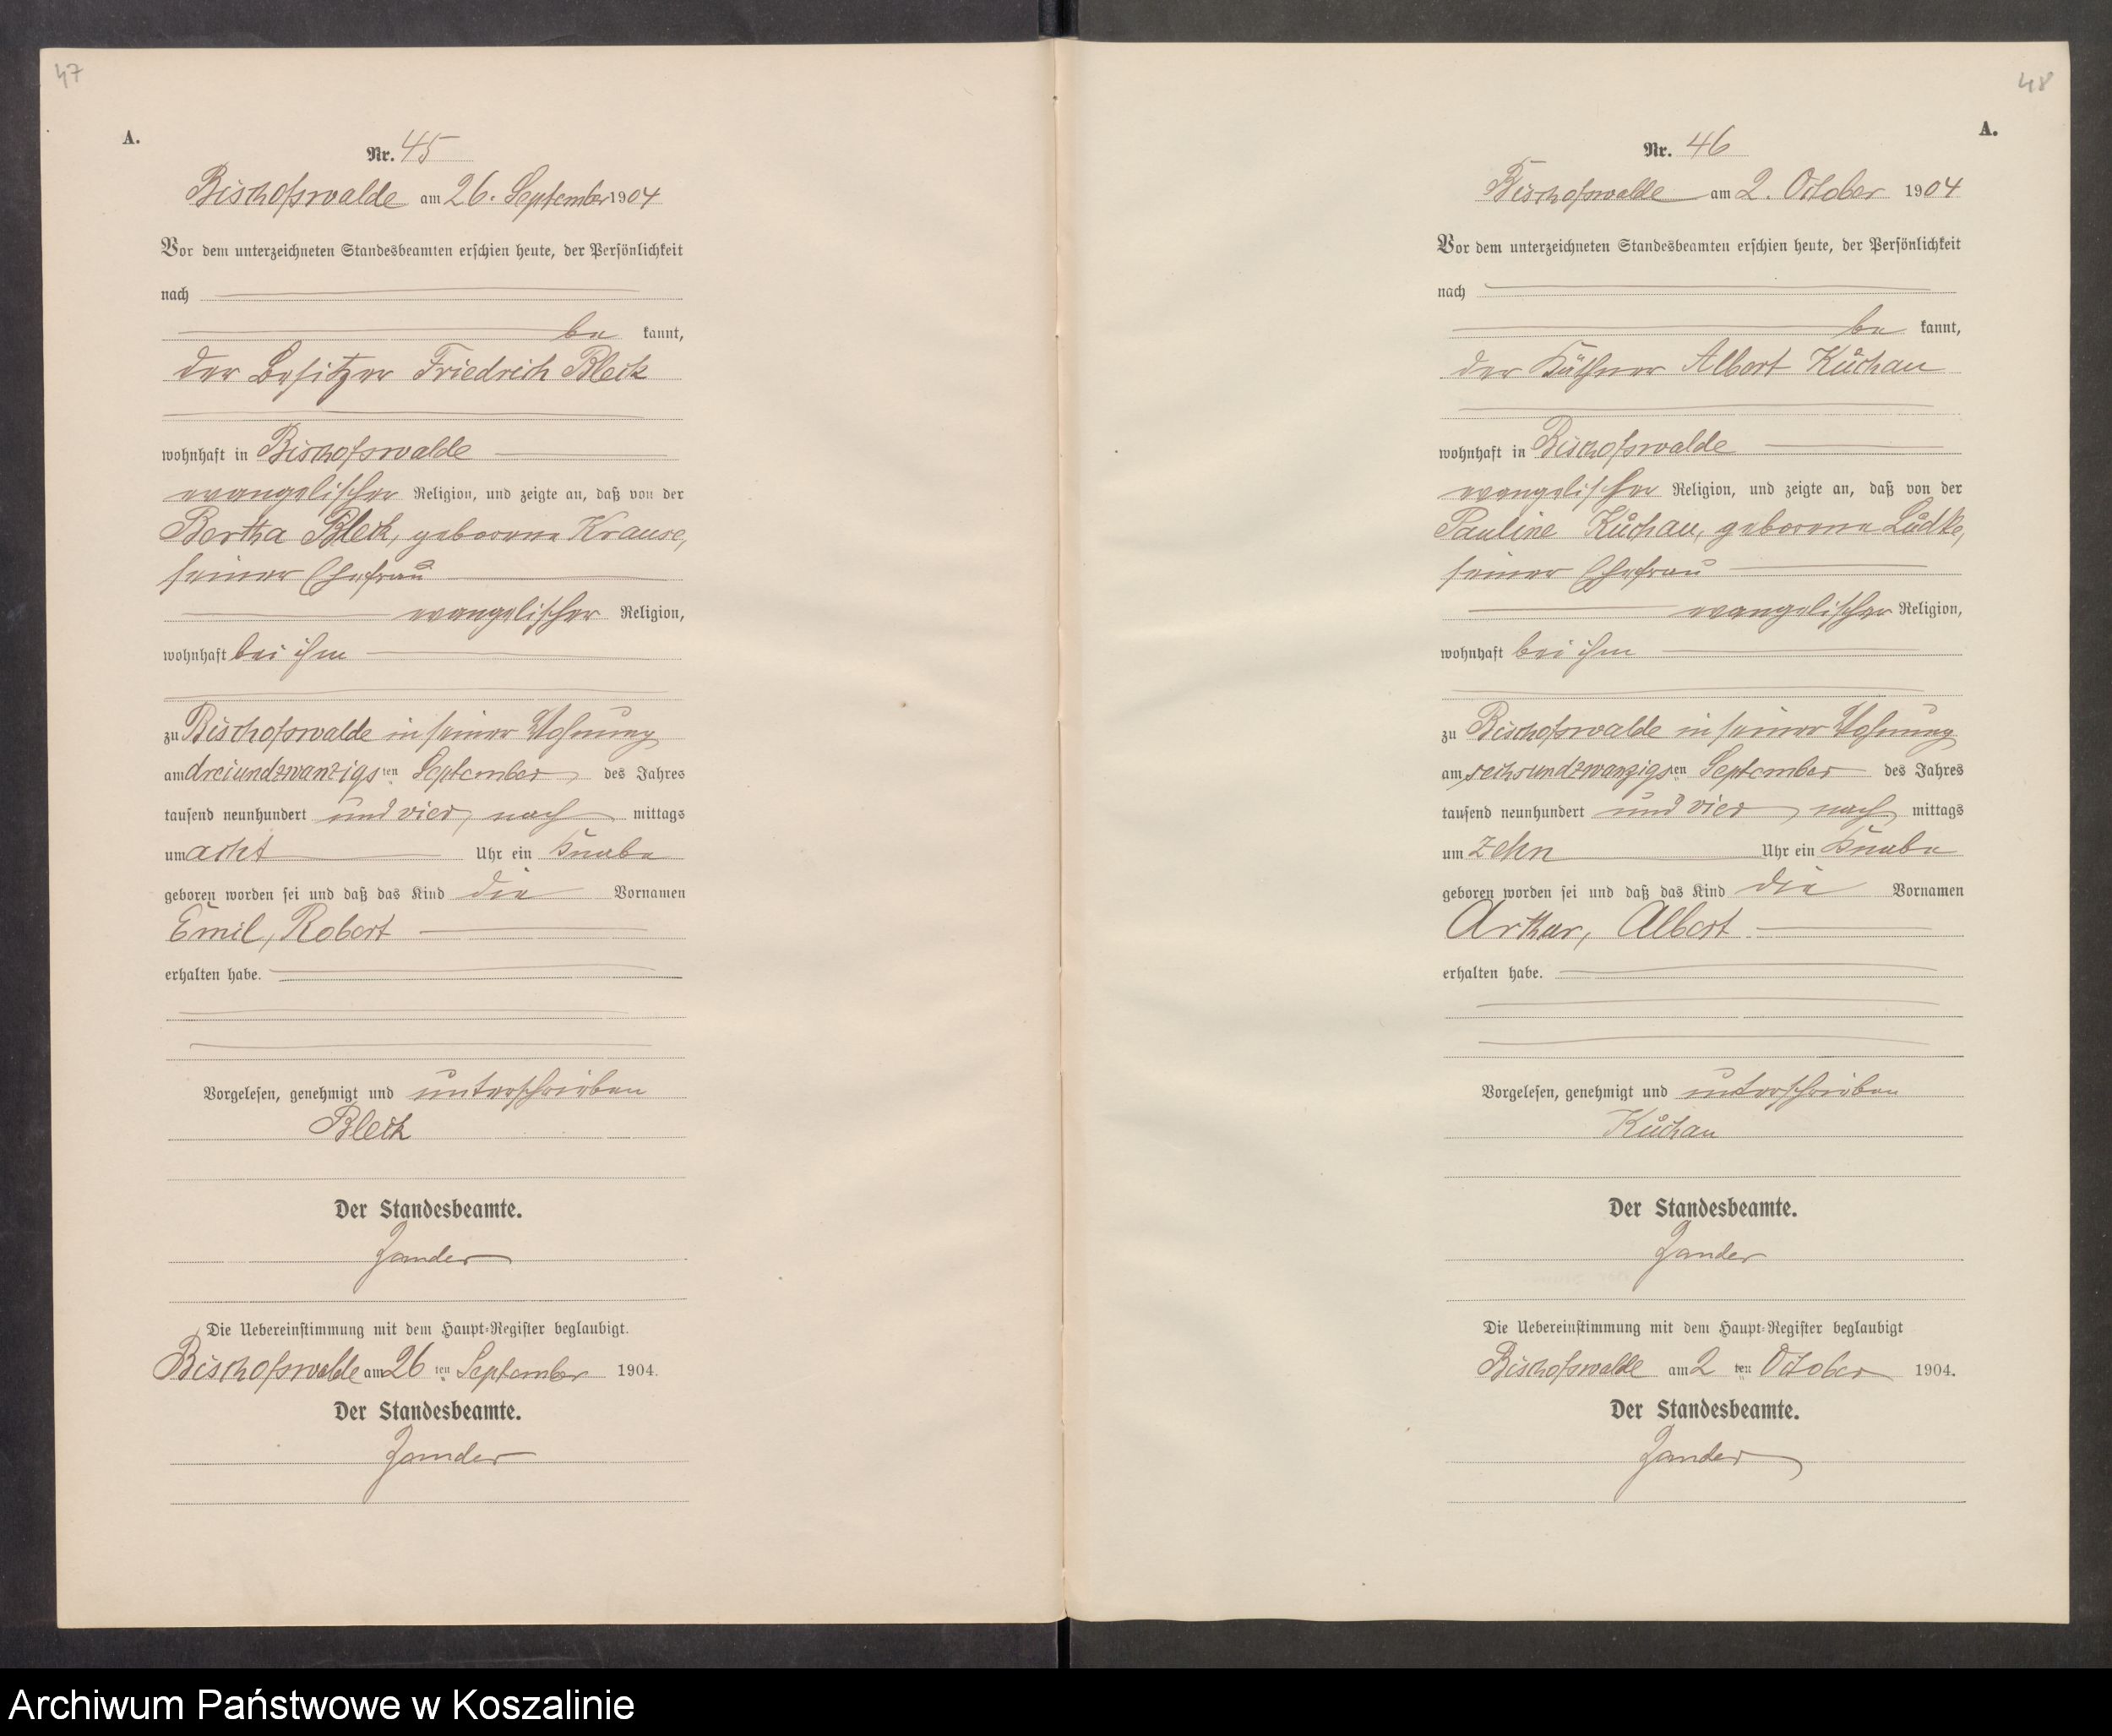 47
A.
Nr. 45
Bischofswalde am 26. September 1904
Vor dem unterzeichneten Standesbeamten erschien heute, der Persönlichkeit
nach
be kannt,
der Besitzer Friedrich Bleck
wohnhaft in Bischofswalde
evangelischer Religion, und zeigte an, daß von der
Bertha Bleck, geborene Krause,
seiner Ehefrau
evangelischer Religion,
wohnhaft bei ihm
zu Bischofswalde in seiner Wohnung
am dreiundzwanzigsten September des Jahres
tausend neunhundert und vier, nach mittags
um acht Uhr ein Knabe
geboren worden sei und daß das Kind die Vornamen
Emil, Robert
erhalten habe.
Vorgelesen, genehmigt und unterschrieben
Bleck
Der Standesbeamte.
Zander
Die Uebereinstimmung mit dem Haupt-Register beglaubigt.
Bischofswalde am 26 ten September 1904.
Der Standesbeamte.
Zander
48
A.
Nr. 46
Bischofswalde am 2. October 1904
Vor dem unterzeichneten Standesbeamten erschien heute, der Persönlichkeit
nach
be kannt,
der Käthner Albert Kůchau
wohnhaft in Bischofswalde
evangelischer Religion, und zeigte an, daß von der
Pauline Kůchau, geborene Lůdke,
seiner Ehefrau
evangelischer Religion,
wohnhaft bei ihm
zu Bischofswalde in seiner Wohnung
am sechsundzwanzigsten September des Jahres
tausend neunhundert und vier, nach mittags
um zehn Uhr ein Knabe
geboren worden sei und daß das Kind die Vornamen
Arthur, Albert
erhalten habe.
Vorgelesen, genehmigt und unterschrieben
Kůchau
Der Standesbeamte.
Zander
Die Uebereinstimmung mit dem Haupt-Register beglaubigt
Bischofswalde am 2 ten October 1904.
Der Standesbeamte.
Zander
Archiwum Państwowe w Koszalinie